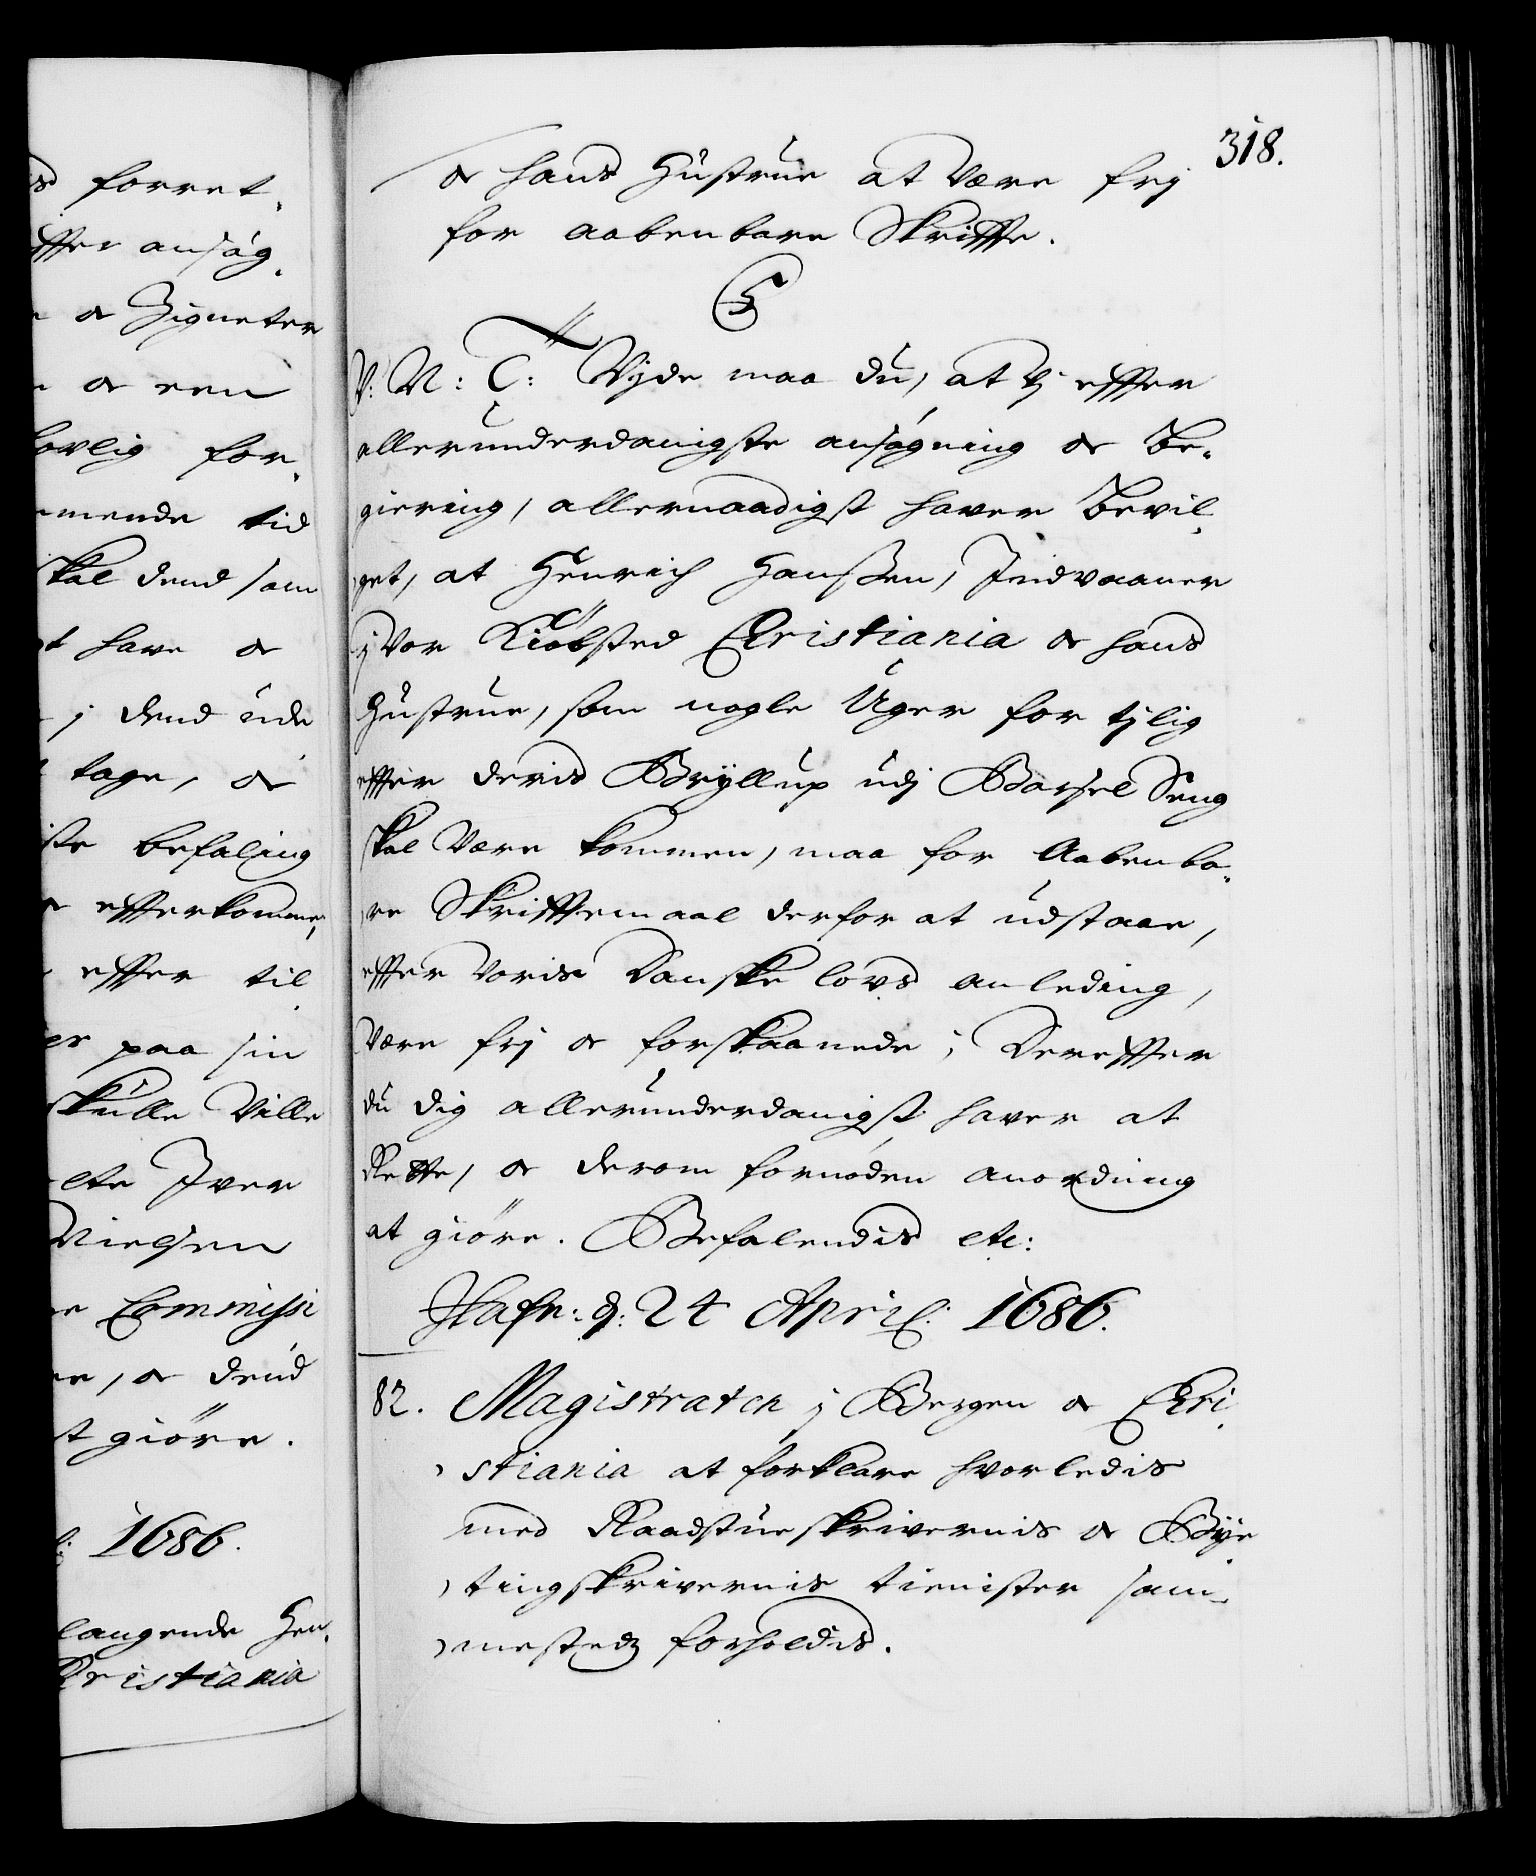 ds forret¸
effter ansøg¸
e & Zigneter
n & een
lovlig for¸
mmende tid
skal dend som
t have &
j dend inde
tage, &
ste befaling
& efterkomme,
effter til
er paa sin
skulle Ville
elte Iver
Nielsen
re Commissi
re, & dend
st giöre.
l: 1686.
langende Hen¸
Christiania
318.
& hans Hustrue at være frj
for aabenbare Skriffte.
C5
V: N: T: Vjde maa du, at Vj effter
allerunderdanigste ansøgning & Be¸
giering, allernaadigst haver Bevil¸
get, at Henrich Hanssen, Indvaaner
j Vor Kiöbsted Christiania & hans
Hustrue, som nogle Uger for tjlig
effter deris Bryllup udj Barsel Seng
skal være kommen, maa for Aabenba¸
re Skrifftemaal derfor at udstaae,
effter Voris Danske lovs anleding,
være frj & forskaanede; Dereffter
du dig allerunderdanigst haver at
Rette, & derom fornøden anordning
at giöre. Befalendis etc:
Hafn: d: 24 April: 1686.
82. Magistraten j Bergen & Chri¸
stiania at forklare hvorledis
med Raadstueskrivernis & Bÿe
tingskrivernis tienister sam¸
mestedz forholdis.